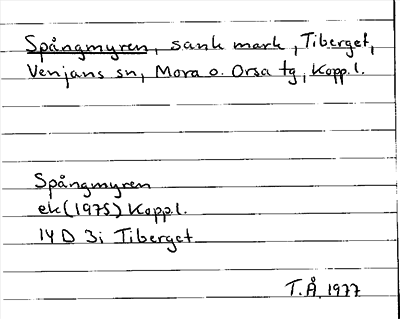 Spångmyren, sank mark, Tiberget,
Venjans sn, Mora o. Orsa tg, Kopp. l.
Spångmyren
ek (1975) Kopp.l.
14 D 3i Tiberget
T.Å. 1977